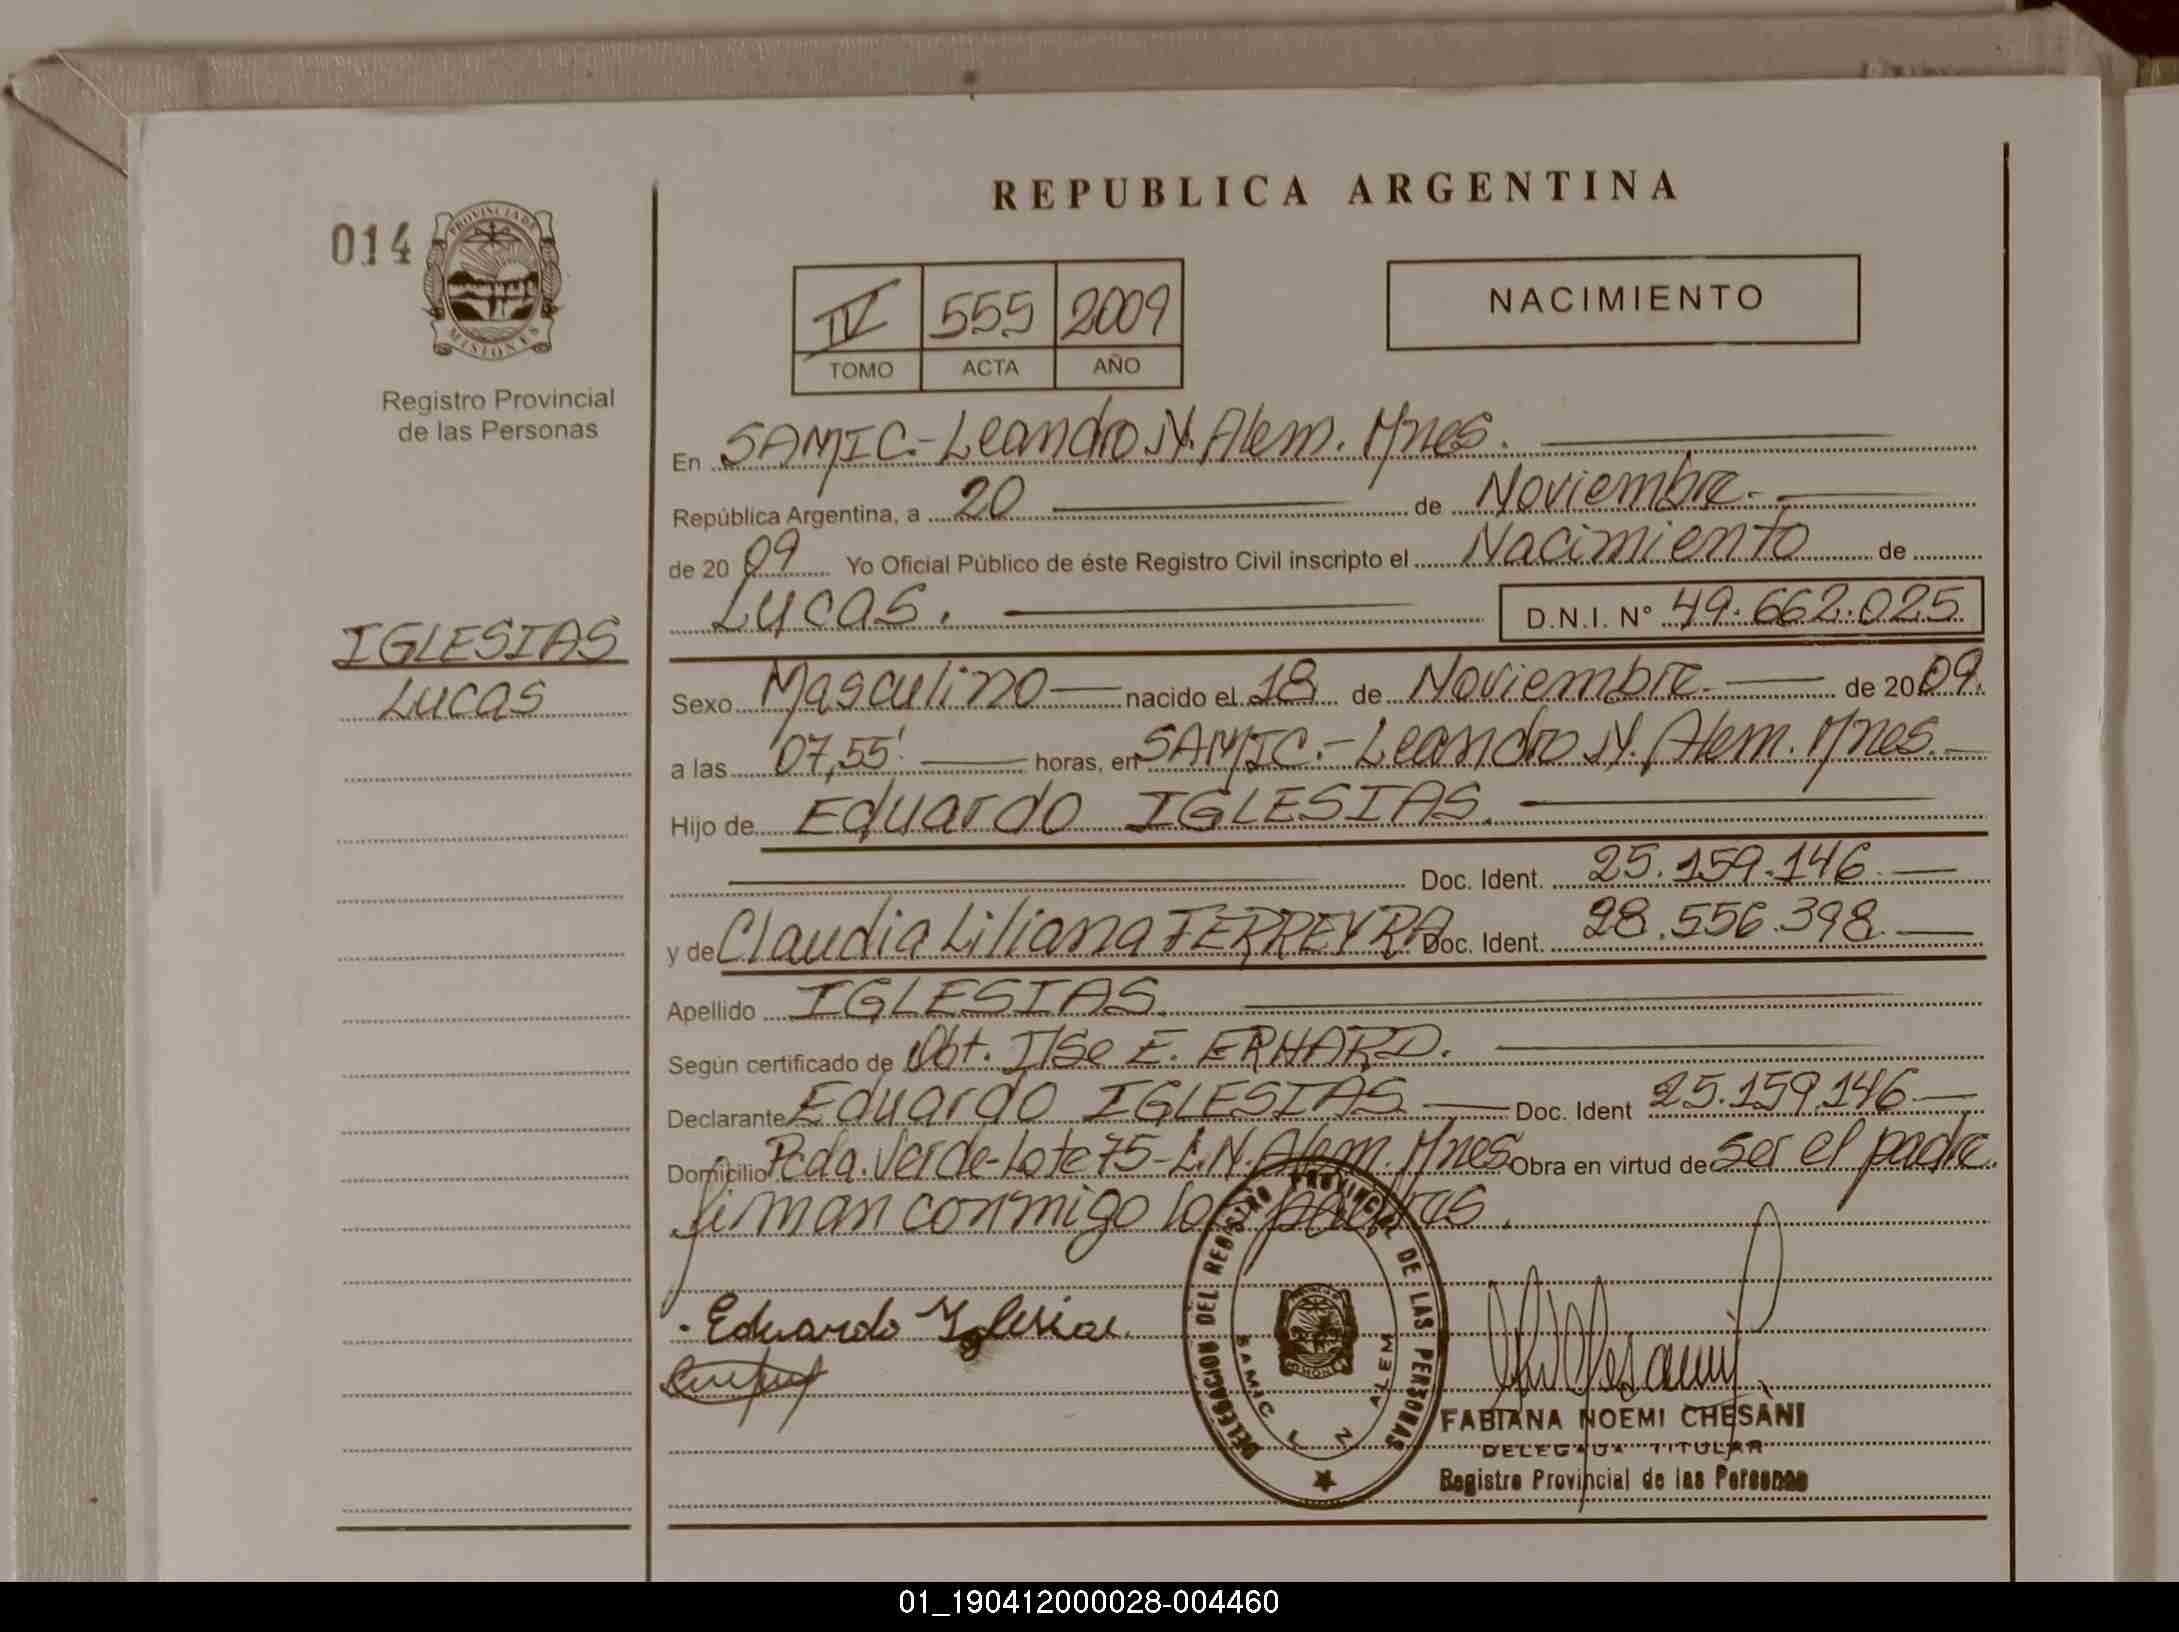 REPUBLICA ARGENTINA
014
PROVINCIA DE
MISIONES
Registro Provincial
de las Personas
IV 555 2009
TOMO ACTA AÑO
NACIMIENTO
En SAMIC.- Leandro N. Alem. Mnes.
República Argentina, a 20 de Noviembre.
de 2009 Yo Oficial Público de éste Registro Civil inscripto el Nacimiento de
Lucas. D.N.I. N° 49.662.025
IGLESIAS
Lucas
Sexo Masculino nacido el 18 de Noviembre. de 2009.
a las 07,55' horas, en SAMIC.- Leandro N. Alem. Mnes.
Hijo de Eduardo IGLESIAS.
Doc. Ident. 25.159.146.
y de Claudia Liliana FERREYRA Doc. Ident. 28.556.398
Apellido IGLESIAS.
Según certificado de Obt. Ilse E. ERHARD.
Declarante Eduardo IGLESIAS Doc. Ident 25.159.146
Domicilio Pcda. Verde-Lote 75-L.N. Alem. Mnes Obra en virtud de ser el padre.
firman conmigo los padres.
Eduardo Iglesias.
DELEGACION DEL REGISTRO PROVINCIAL DE LAS PERSONAS
SAMIC L N ALEM
FABIANA NOEMI CHESANI
DELEGADA TITULAR
Registro Provincial de las Personas
01_190412000028-004460